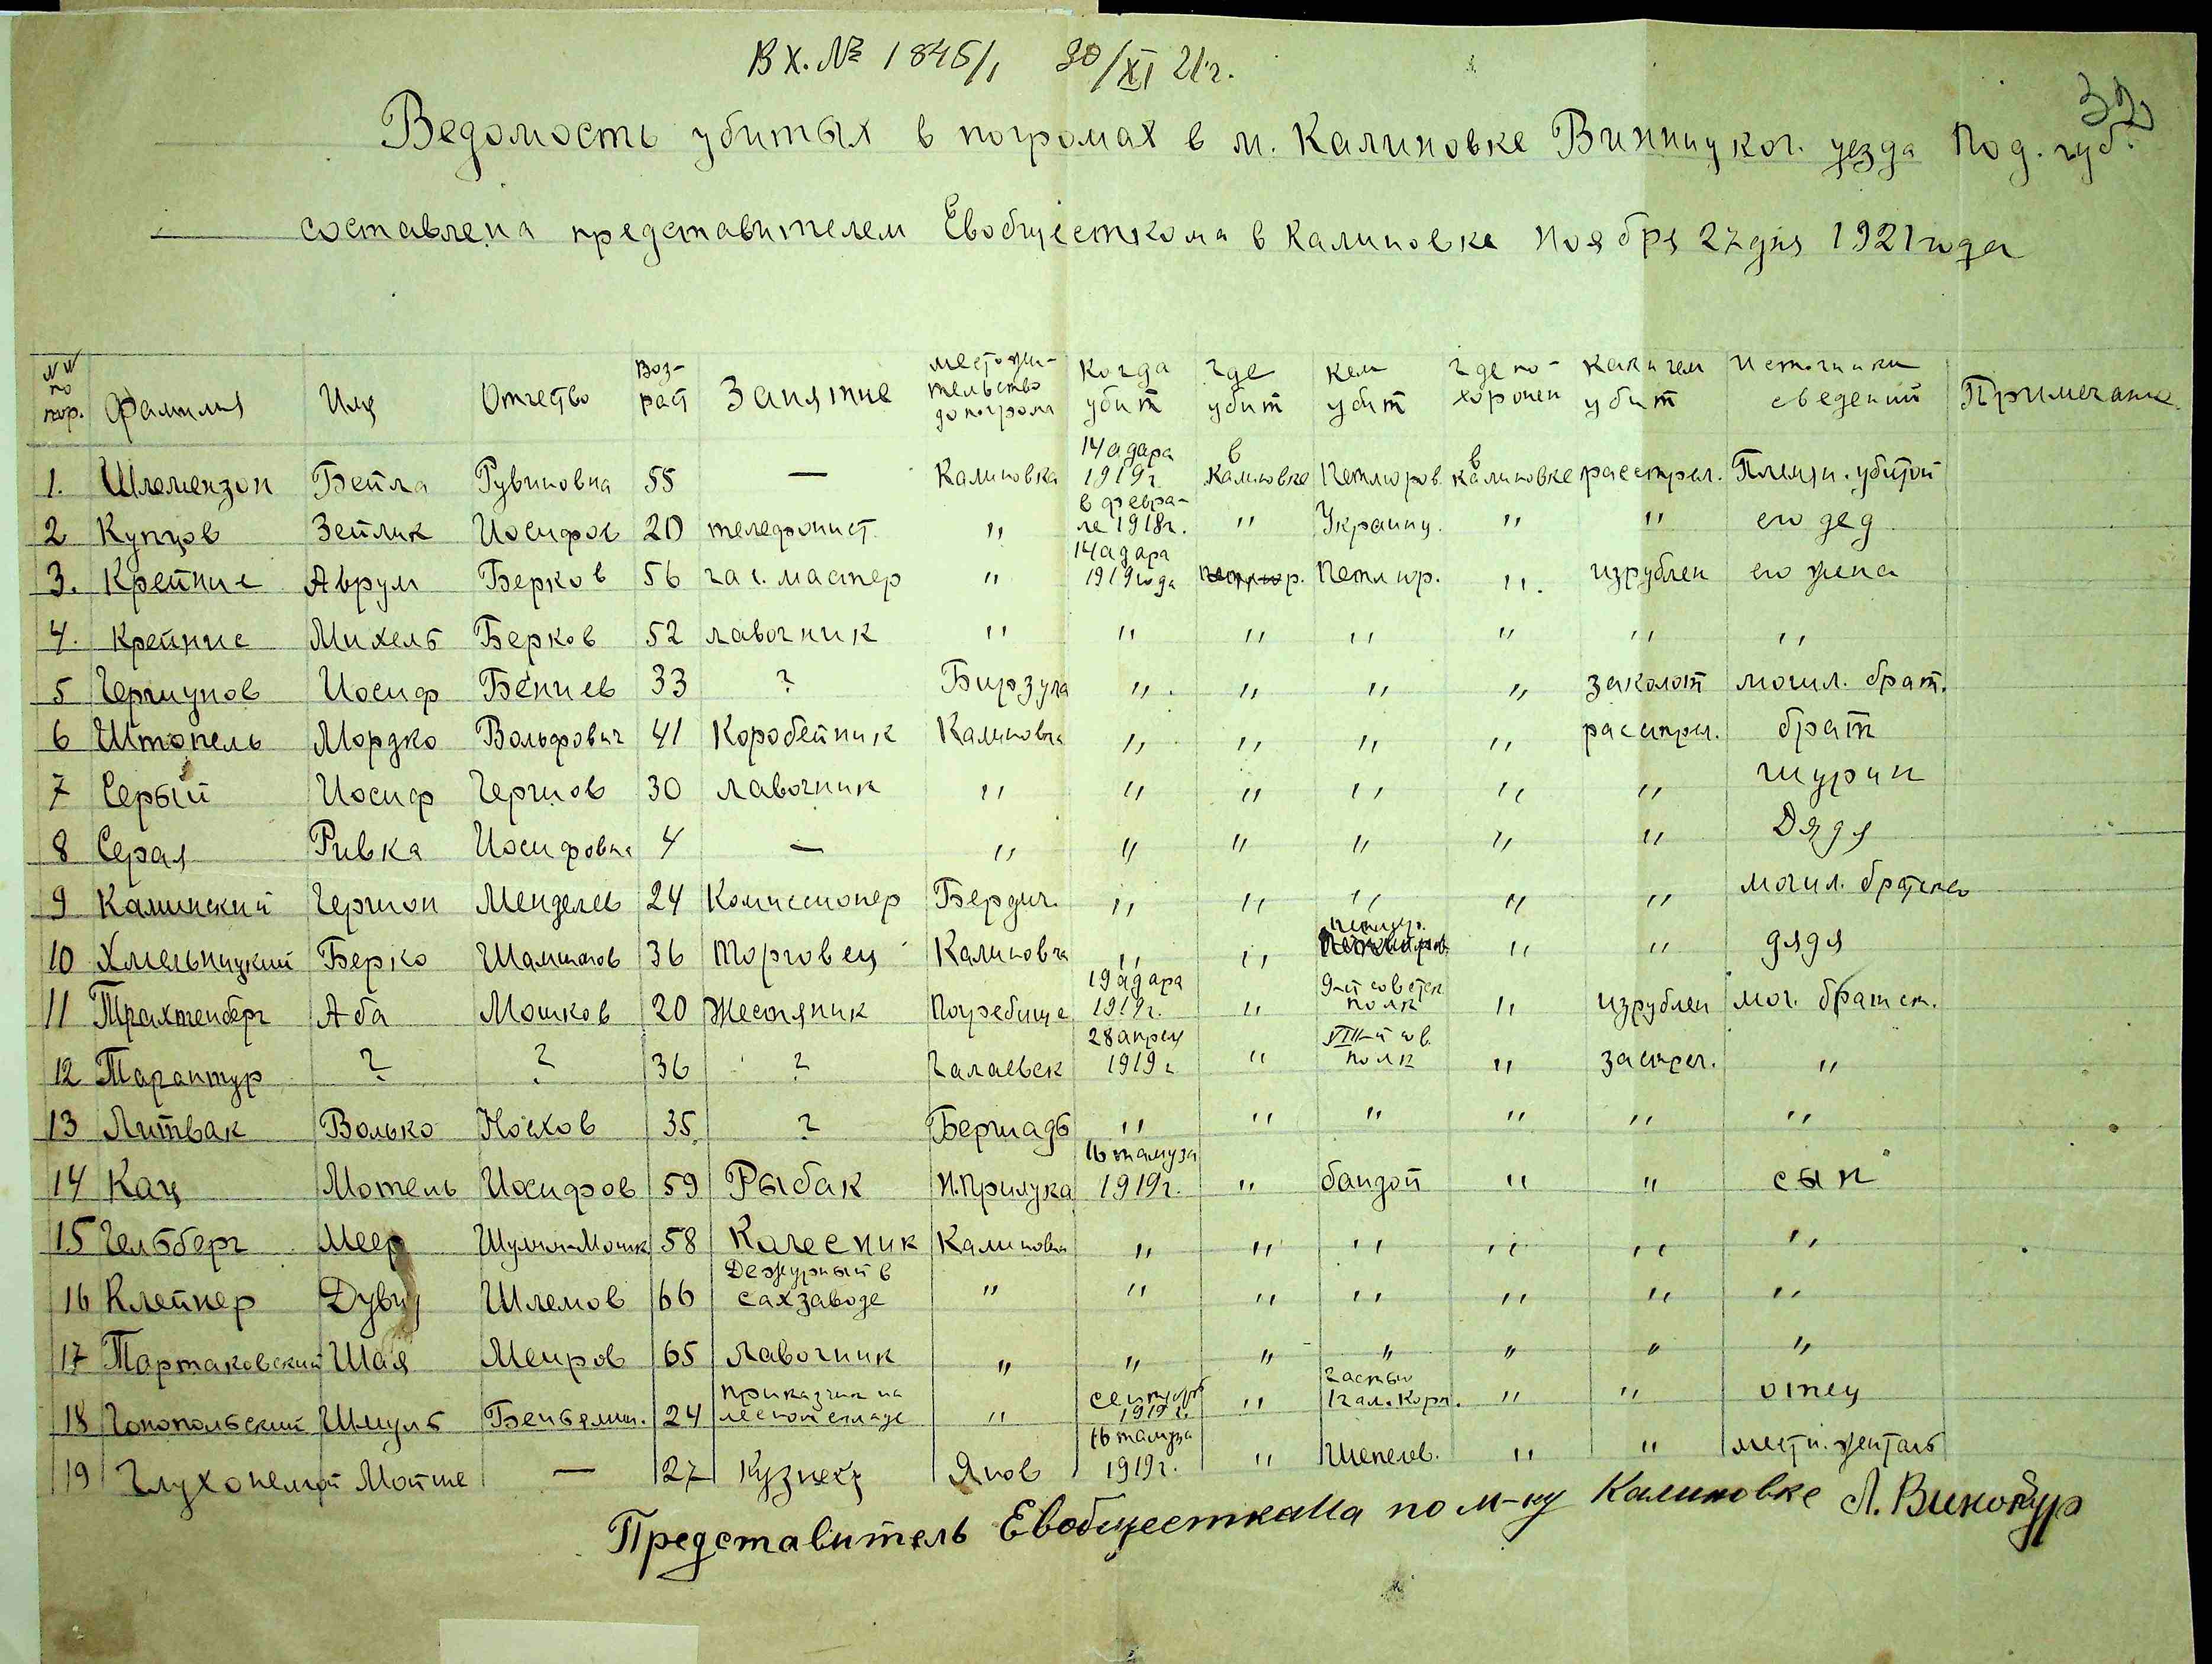 Вх. № 1845/1 30/XI 21 г.
32
Ведомость убитых в погромах в м. Калиновке Винницког. уезда Под. губ.
составлена представителем Евобщесткома в Калиновке Ноября 27 дня 1921 года
№№ по пор. Фамилия Имя Отчество Воз-раст Занятие местожи-тельство до погрома Когда убит где убит кем убит где по-хоронен как и чем убит источники сведений Примечание
1. Шлемензон Бейла Рувиновна 55 — Калиновка 14 адара 1919 г. в Калиновке Петлюров. в Калиновке расстрел. Племян. убитой
2 Купцов Зейлик Иосифов 20 телефонист " в февра-ле 1918 г. " Украинц. " " его дед
3. Крейнис Аврум Берков 56 час. мастер " 14 адара 1919 года Петлюр. Петлюр. " изрублен его жена
4. Крейнис Михель Берков 52 лавочник " " " " " " "
5 Гершунов Иосиф Бениев 33 ? Бирзула " " " " заколот могил. брат.
6 Штопель Мордко Вольфович 41 Коробейник Калиновка " " " " расстрел. брат
7 Серый Иосиф Гершов 30 лавочник " " " " " " шурин
8 Серая Ривка Иосифовна 4 — " " " " " " Дядя
9 Калинский Гершон Менделев 24 Комиссионер Бердич. " " " " " могил. братство
10 Хмельницкий Берко 36 Торговец Калиновка " " Петлюр. " " дядя
11 Трахтенберг Аба Мошков 20 Жестяник Погребище 19 адара 1919 г. " 9-й советск полк " изрублен мог. братст.
12 Тарантур ? ? 36 ? Галаевск 28 апреля 1919 г. " VIII-й сов. полк " застрел. "
13 Литвак Волько Носхов 35 ? Бершадь " " " " " "
14 Кац Мотель Иосифов 59 Рыбак Н. Прилука 16 тамуза 1919 г. " бандой " " сын
15 Гельберг Меер Шулим-Мошк 58 Калесник Калиновка " " " " " "
16 Клейнер Дувид Шлемов 66 Дежурный в сахзаводе " " " " " " "
17 Тартаковский Шая Меиров 65 Лавочник " " " " " " "
18 Гонопольский Шмуль Беньямин. 24 приказчик на лесном складе " сентября 1919 г. " частью 1 гал. Корп. " " отец
19 Глухонемой Мойше — 27 Кузнец Янов 16 тамуза 1919 г. " Шепелев. " " местн. житель
Представитель Евобщесткома по м-ку Калиновке Л. Винокур